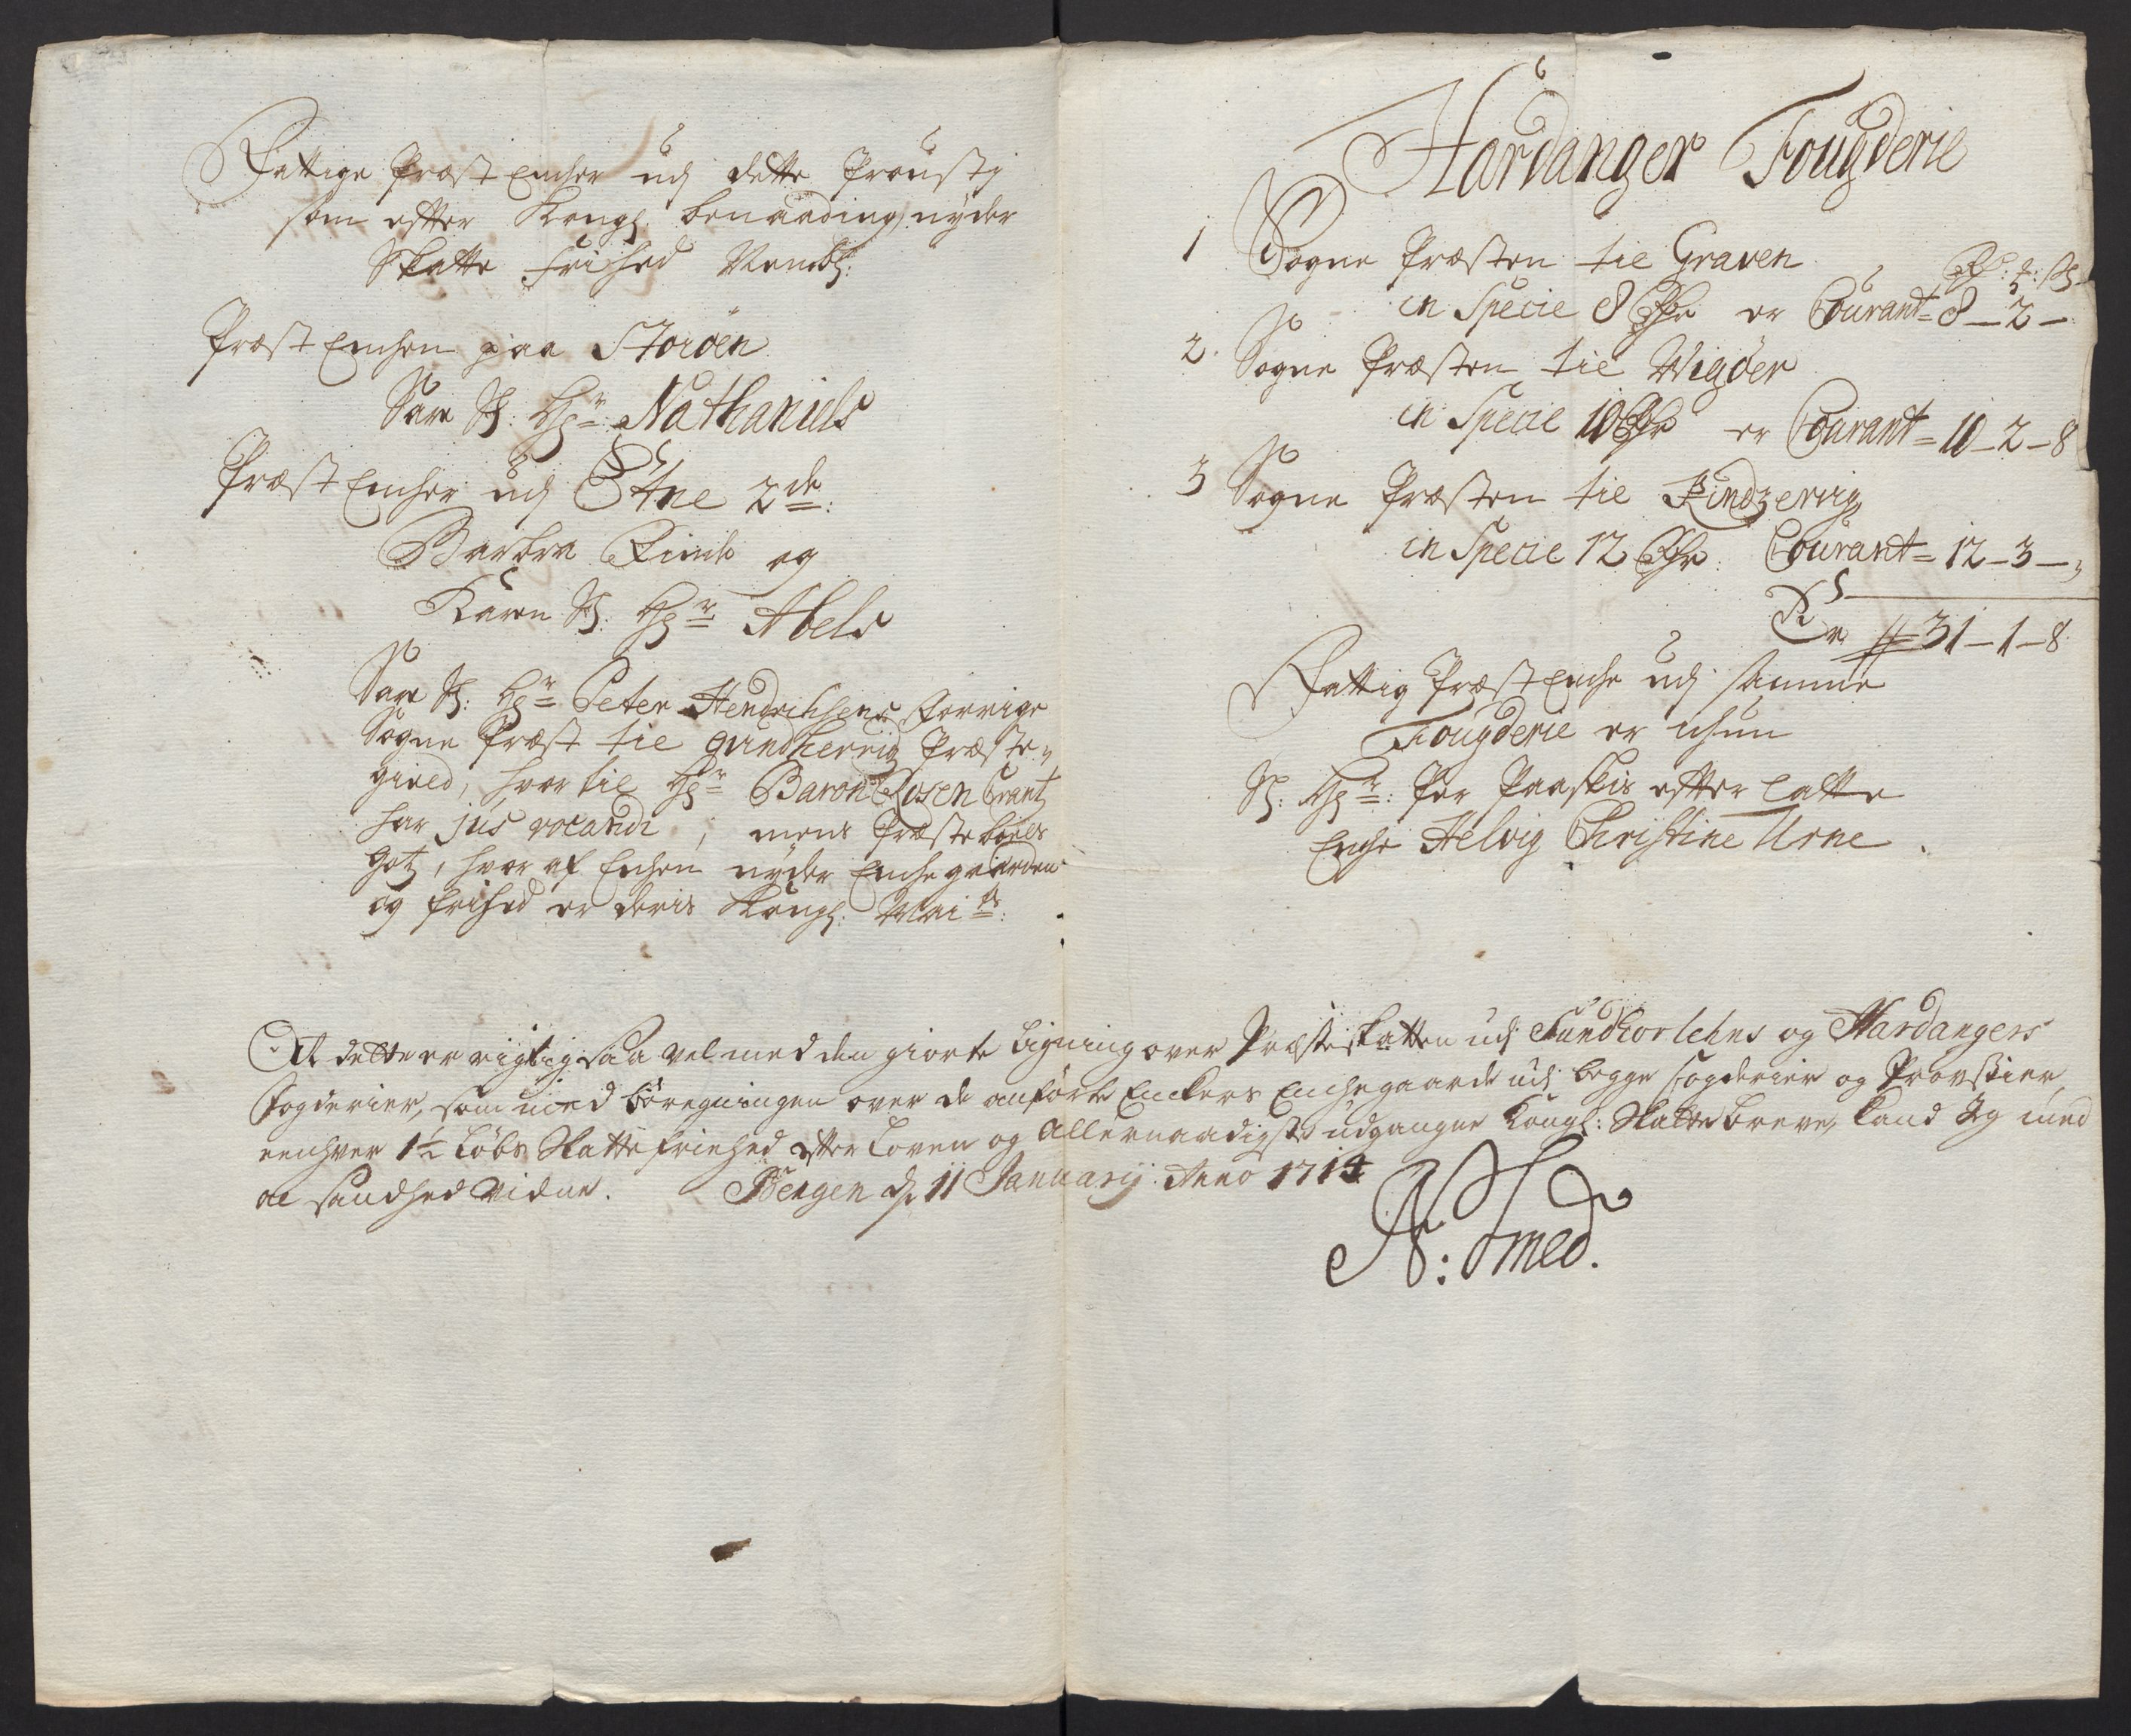 Fattige Præst Encher udj dette Prousti
som efter Kongl: benaading nyder
Skatte frihed Nembl:
Præst Enchen paa Storöen
Sare Sl: Hr: Nathaniels
Præst Encher udj Etne 2de:
Barbra Finds og
Karen Sl: Hr: Abels
Sare Sl: Hr: Peter Hendrichsens forrige
Sogne Præst til Qvindherrig Præste,,
gield, hvor til Hr: Baron Rosen Crantz
har jus vocandi, mens Præstebolets
Gotz, hvor af Enchen nyder Enchegaarden
og frihed er deris Kongl: Mai:ts:
Hardanger Fougderie
1 Sogne Præsten til Graven
Rdr: : s
in Specie 8 Rdr er Courant= 8 – 2 –
2. Sogne Præsten til Wigöer
in Specie 10 Rdr er Courant= 10 – 2 – 8
3 Sogne Præsten til Kindzervig
in Specie 12 Rdr: Courant= 12 – 3 –
Er 31 – 1 – 8
Fattig Præst Enche udj samme
Fougderie er ichun
Sl: Hr: Per Paaskis efter latte
Enche Helvig Christine Urne.
At dette er rigtig saa vel med den giorte Ligning over Præsteskatten udj Sundhorlehns og Hardangers
Fogderier, som med beregningen over de anförte Enckers Enchegaarde udj begge fogderier og Provstier,
eenhver 1½ Löbs Skatte friehed efter Loven og Allernaadigste udgangne Kongl: Skattebreve, kand Jeg med
al sandhed vidne. Bergen d: 11 Januarij: Anno 1714
N: Smed.